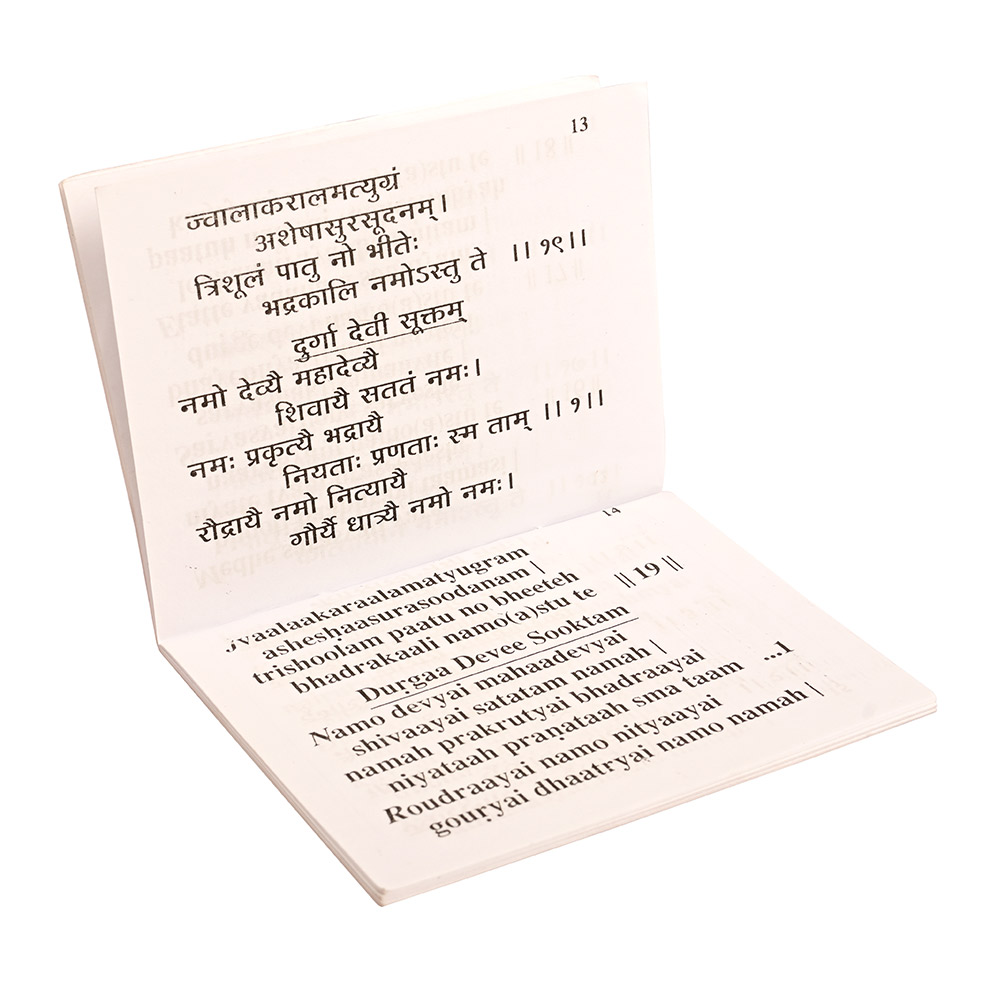 13
ज्वालाकरालमत्युग्रं
अशेषासुरसूदनम्।
त्रिशूलं पातु नो भीतेः
भद्रकालि नमोऽस्तु ते ।।१९।।
दुर्गा देवी सूक्तम्
नमो देव्यै महादेव्यै
शिवायै सततं नमः।
नमः प्रकृत्यै भद्रायै
नियताः प्रणताः स्म ताम् ।।१।।
रौद्रायै नमो नित्यायै
गौर्यै धात्र्यै नमो नमः।
14
jvaalaakaraalamatyugram
asheṣhaasurasoodanam |
trishoolam paatu no bheeteh
bhadrakaali namo(a)stu te || 19 ||
Durgaa Devee Sooktam
Namo devyai mahaadevyai
shivaayai satatam namah |
namah prakrutyai bhadraayai
niyataah praṇataah sma taam ...1
Roudraayai namo nityaayai
gouryai dhaatryai namo namah |